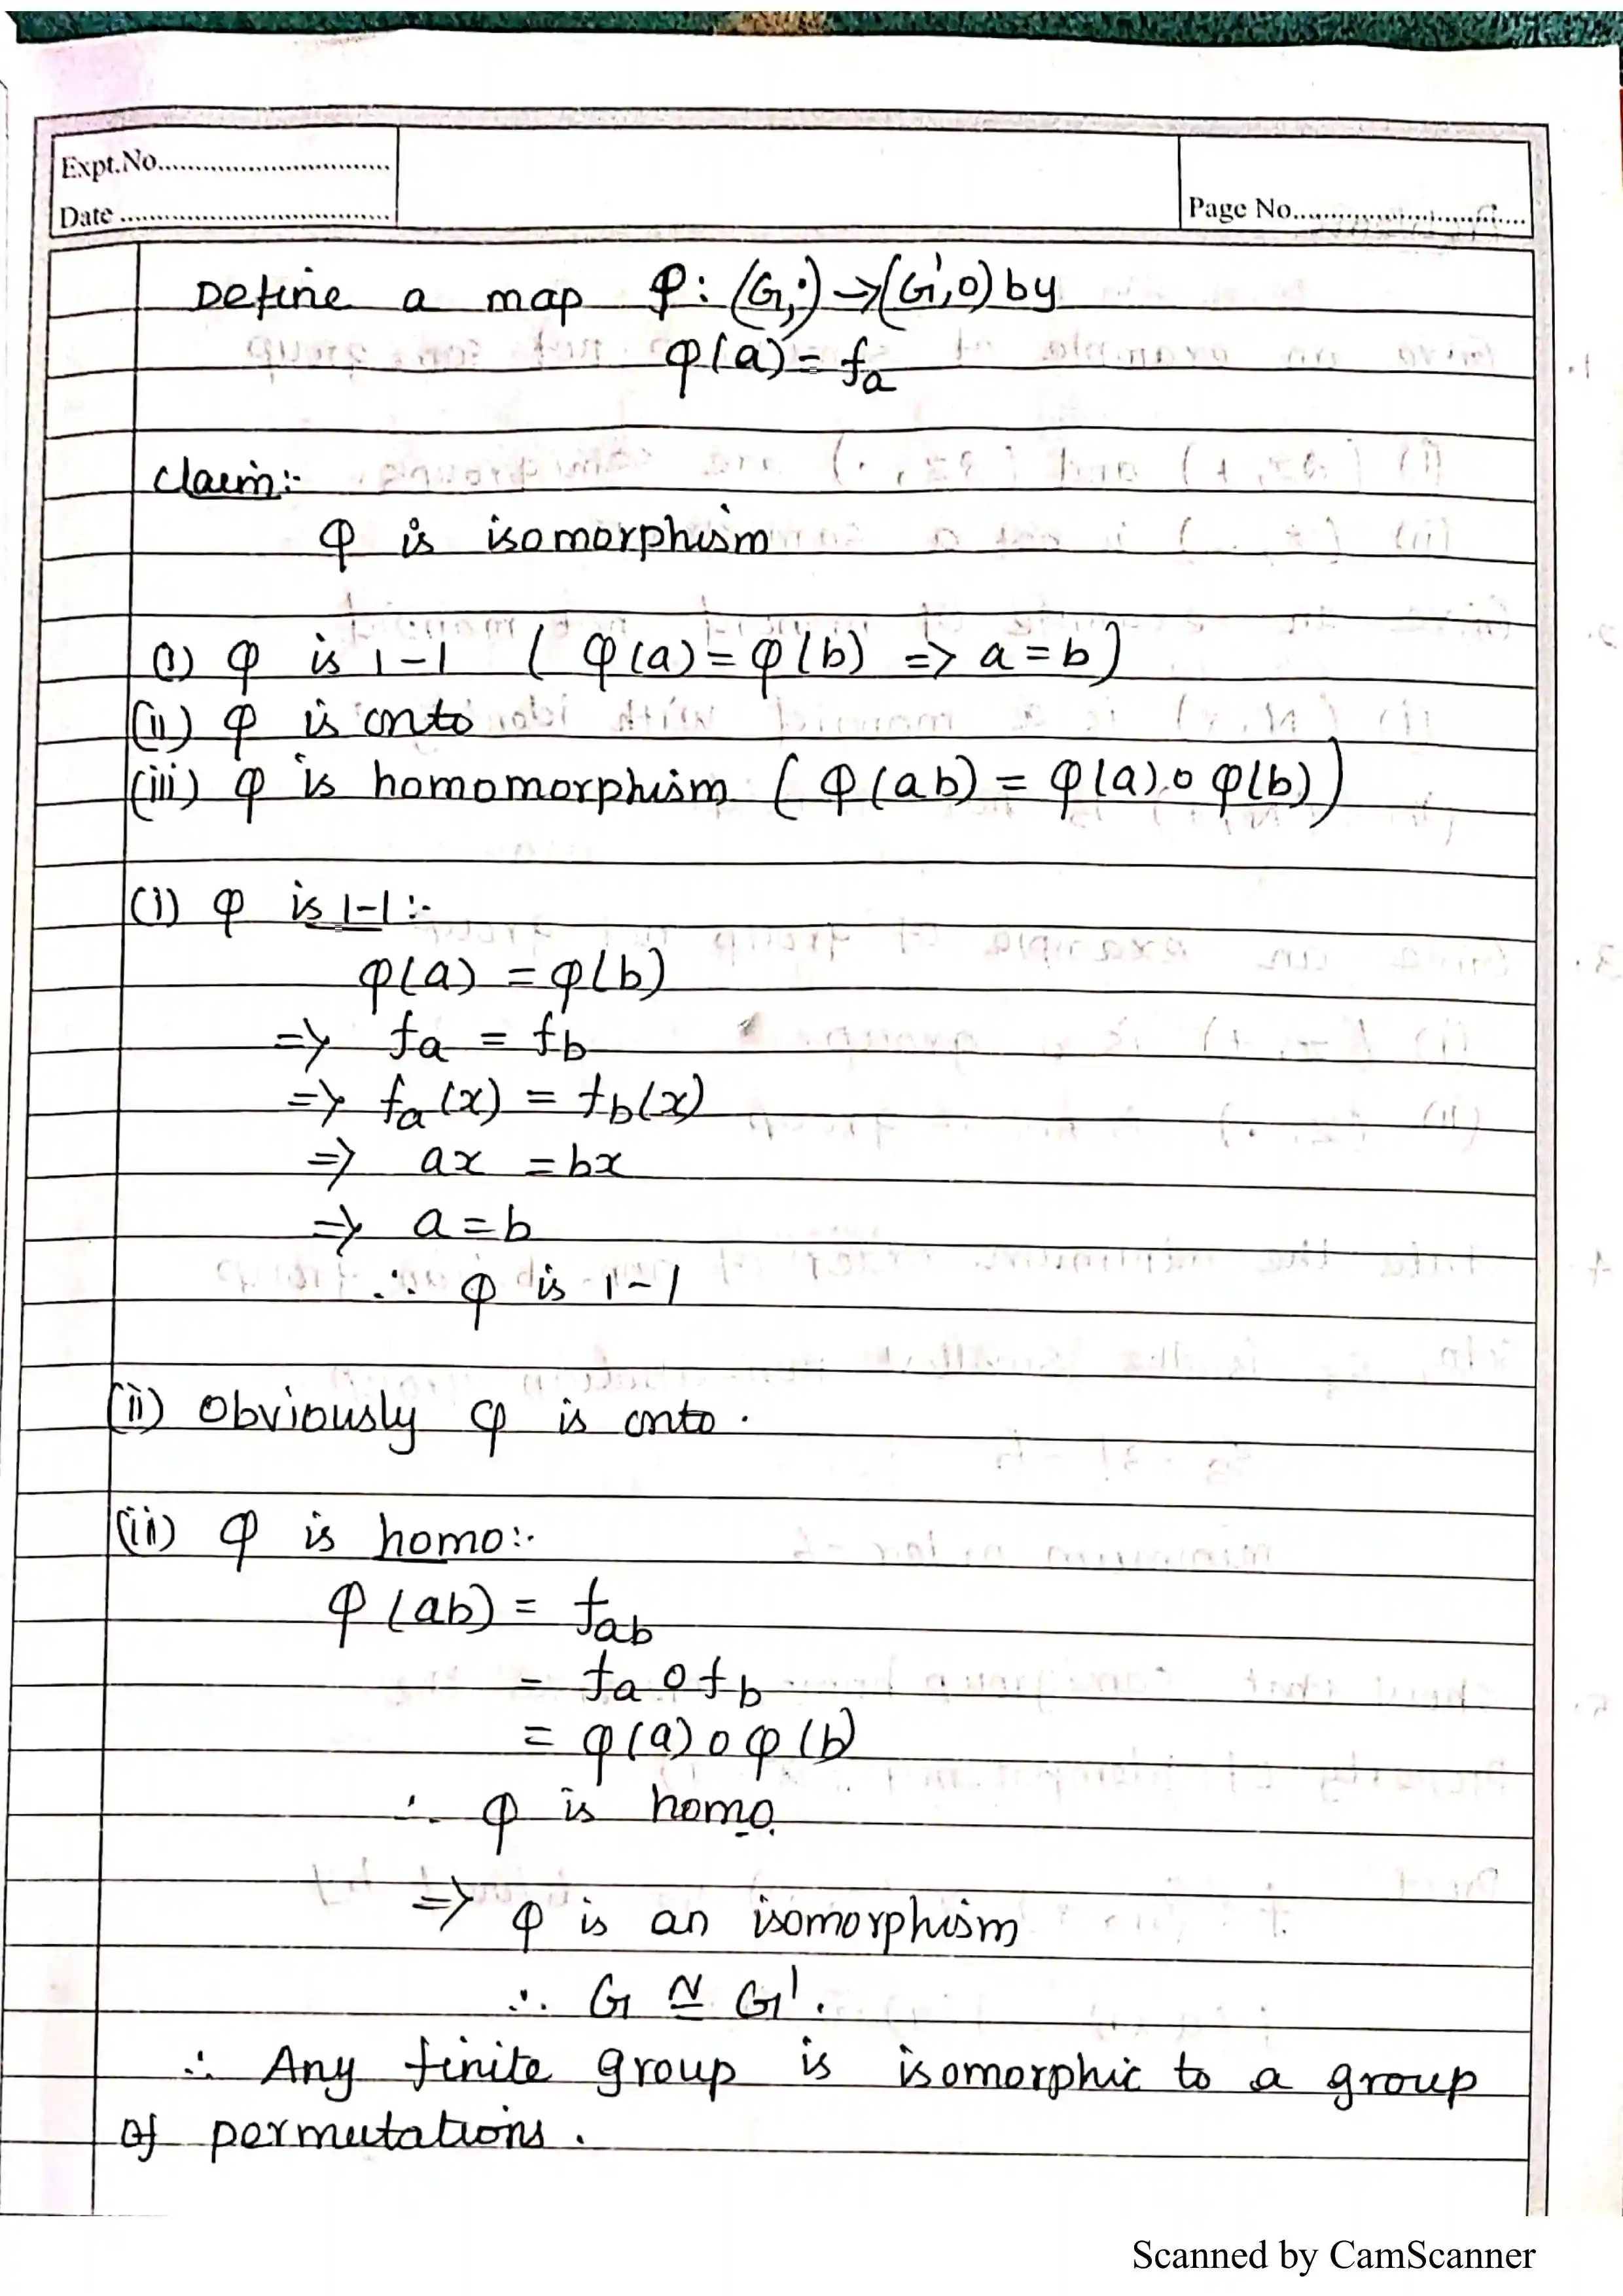 Expt.No.
Date
Page No.
Define a map φ: (G,·) → (G',o) by
φ(a) = fa
claim:-
φ is isomorphism
(i) φ is 1-1 ( φ(a) = φ(b) => a = b )
(ii) φ is onto
(iii) φ is homomorphism ( φ(ab) = φ(a) o φ(b) )
(i) φ is 1-1 :-
φ(a) = φ(b)
=> fa = fb
=> fa(x) = fb(x)
=> ax = bx
=> a = b
∴ φ is 1-1
(ii) Obviously φ is onto.
(iii) φ is homo:-
φ(ab) = fab
= fa o fb
= φ(a) o φ(b)
∴ φ is homo.
=> φ is an isomorphism
∴ G ≅ G'.
∴ Any finite group is isomorphic to a group
of permutations.
Scanned by CamScanner